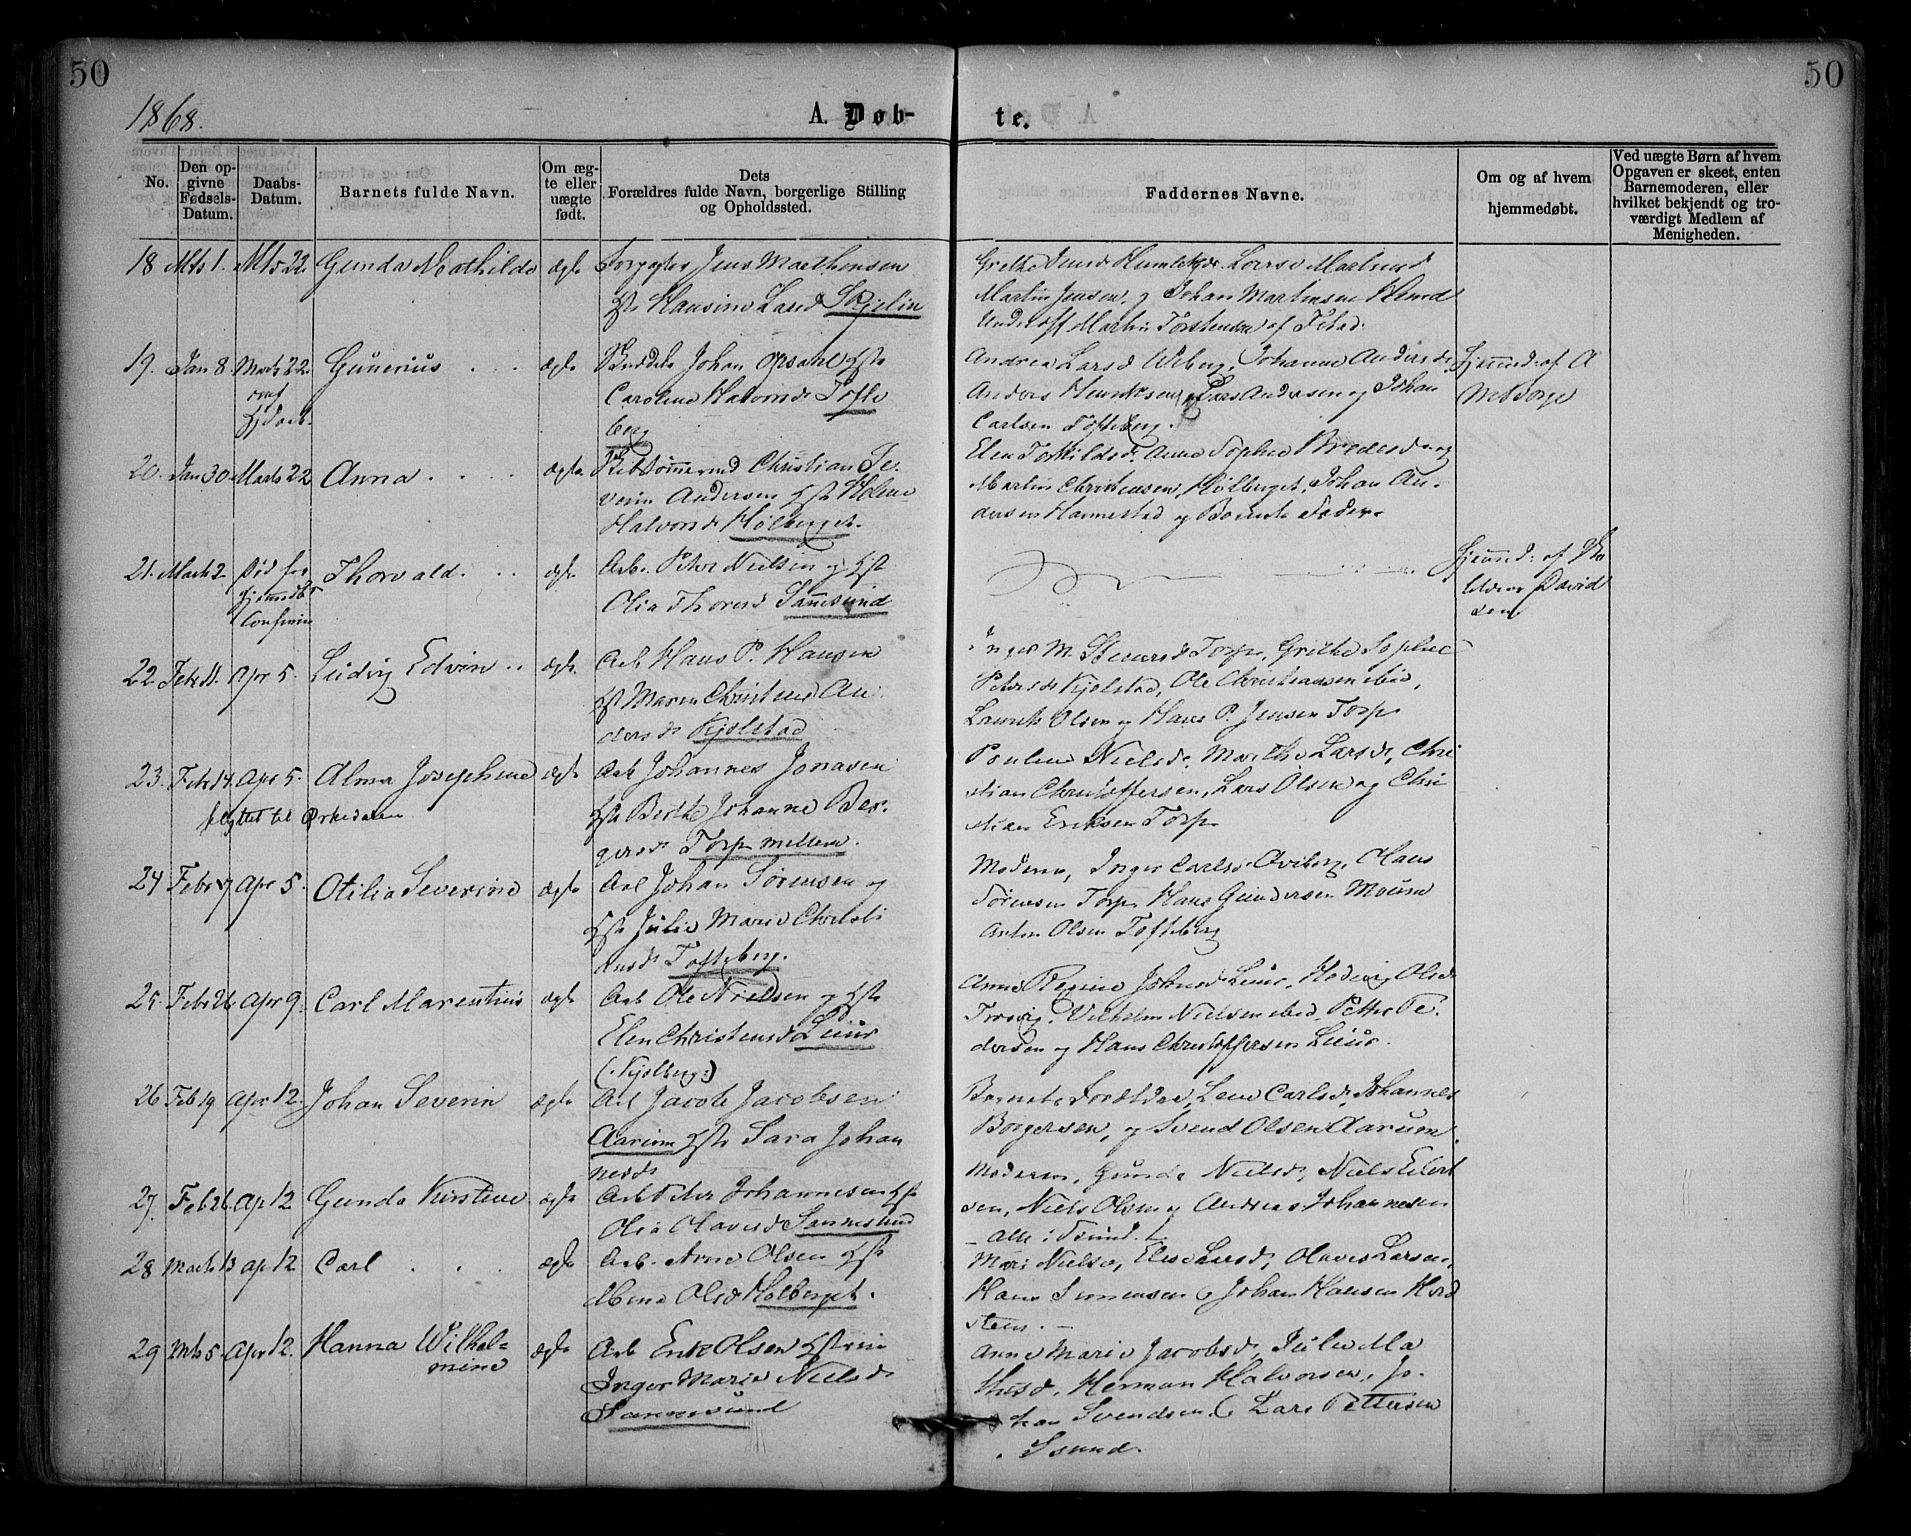 50
50
1868.
A. Døb-
te.
No.
Den op-
givne
Fødsels-
Datum.
Daabs-
Datum.
Barnets fulde Navn.
Om æg-
te eller
uægte
født.
Dets
Forældres fulde Navn, borgerlige Stilling
og Opholdssted.
Faddernes Navne.
Om og af hvem
hjemmedøbt.
Ved uægte Børn af hvem
Opgaven er skeet, enten
Barnemoderen, eller
hvilket bekjendt og tro-
værdigt Medlem af
Menigheden.
18 Mts 1. Mts 22 Gunda Mathilde ægte Jens Marthinsen
Hansine Larsd Skjelin
Martin Jensen, Johan Martinsen
Martin Torstensen af
19. Jan 8. Marts 22 Gunerius ægte Johan Opsahl
Caroline Halvorsd Tofte
berg
Andrea Larsd Wiberg, Johanne Andersd
Anders Henriksen, Lars Andersen og Johan
Carlsen Tofteberg.
Hjemmd. af A
20. Jan 30. Marts 22 Anna ægte Christian Se-
verin Andersen Helene
Halvorsd Hølberget.
Elen Torkildsd. Anne Sophie
Martin Christensen, Hølberget, Johan An-
dersen Hannestad og Barnets Fader.
21. Marts 2. Død før Thorvald. ægte Arb. Peter Nielsen og Hst
Olia Thoresd Sannesund
Hjemmd. af
David
sen
22. Febr 11. Apr 5. Ludvig Edvin ægte Arb Hans P. Hansen
Hst Maren Christine An
dersd Kjølstad
Inger M. Torp, Grethe Sophie
Petersd Kjølstad, Ole Christiansen ibid,
Olsen og Hans P. Jensen Torp
23. Febr 14. Apr 5. Alma Josephine ægte Arb Johannes Jonasen
flyttet til Ørkedalen
Hst Berthe Johanne Bør-
gersd Torp mellem.
Pouline Nielsd, Marthe Larsd, Chri
stian Christoffersen, Lars Olsen og Chri
stian Eriksen Torp
24 Febr 7. Apr 5. Otilia Severine ægte Arb Johan Sørensen og
Hst Julie Marie Christi
ansd Tofteberg.
Moderen, Inger Carlsd Hans
Sørensen Torp Hans Gundersen
Anton Olsen Tofteberg
25. Febr 26. Apr 9. Carl Marentius ægte Arb Ole Nielsen og Hst
Elen Christensd Leiur
(:Kjølberg:)
Anne Regine Johnsd Leiur, Hedevig Olsd
Vilhelm Nielsen ibid, Petter Pe-
dersen og Hans Christoffersen Leiur.
26 Feb 19 Apr 12. Johan Severin ægte Arb Jacob Jacobsen
Aarum Hst Sara Johan
nesd
Barnets Forældre, Lene Carlsd, Johannes
Borgersen, og Svend Olsen Aarum.
27. Feb 26. Ap 12 Gunda Kirstine ægte Arb Peter Johannesen Hst
Olia Olavesd Sannesund
Moderen, Gunda Nielsd, Niels Eilert
sen, Niels Olsen og Andreas Johannesen
alle i Ssund.
28 Marts 13 Ap 12 Carl ægte Arb. Arne Olsen Hst
Olsd Hølberget.
Mari Nielsd, Elise Larsd, Olaves Larsen,
Hans Simensen & Johan Hansen
29 Mts 5. Apr 12. Hanna Wilhel-
mine
ægte Arb Erik Olsen Hstrue
Inger Marie Nielsd
Sannesund
Anne Marie Jacobsd, Julie Ma
thisd, Herman Halvorsen, Jo-
han Svendsen & Lars Pettersen
Ssund.